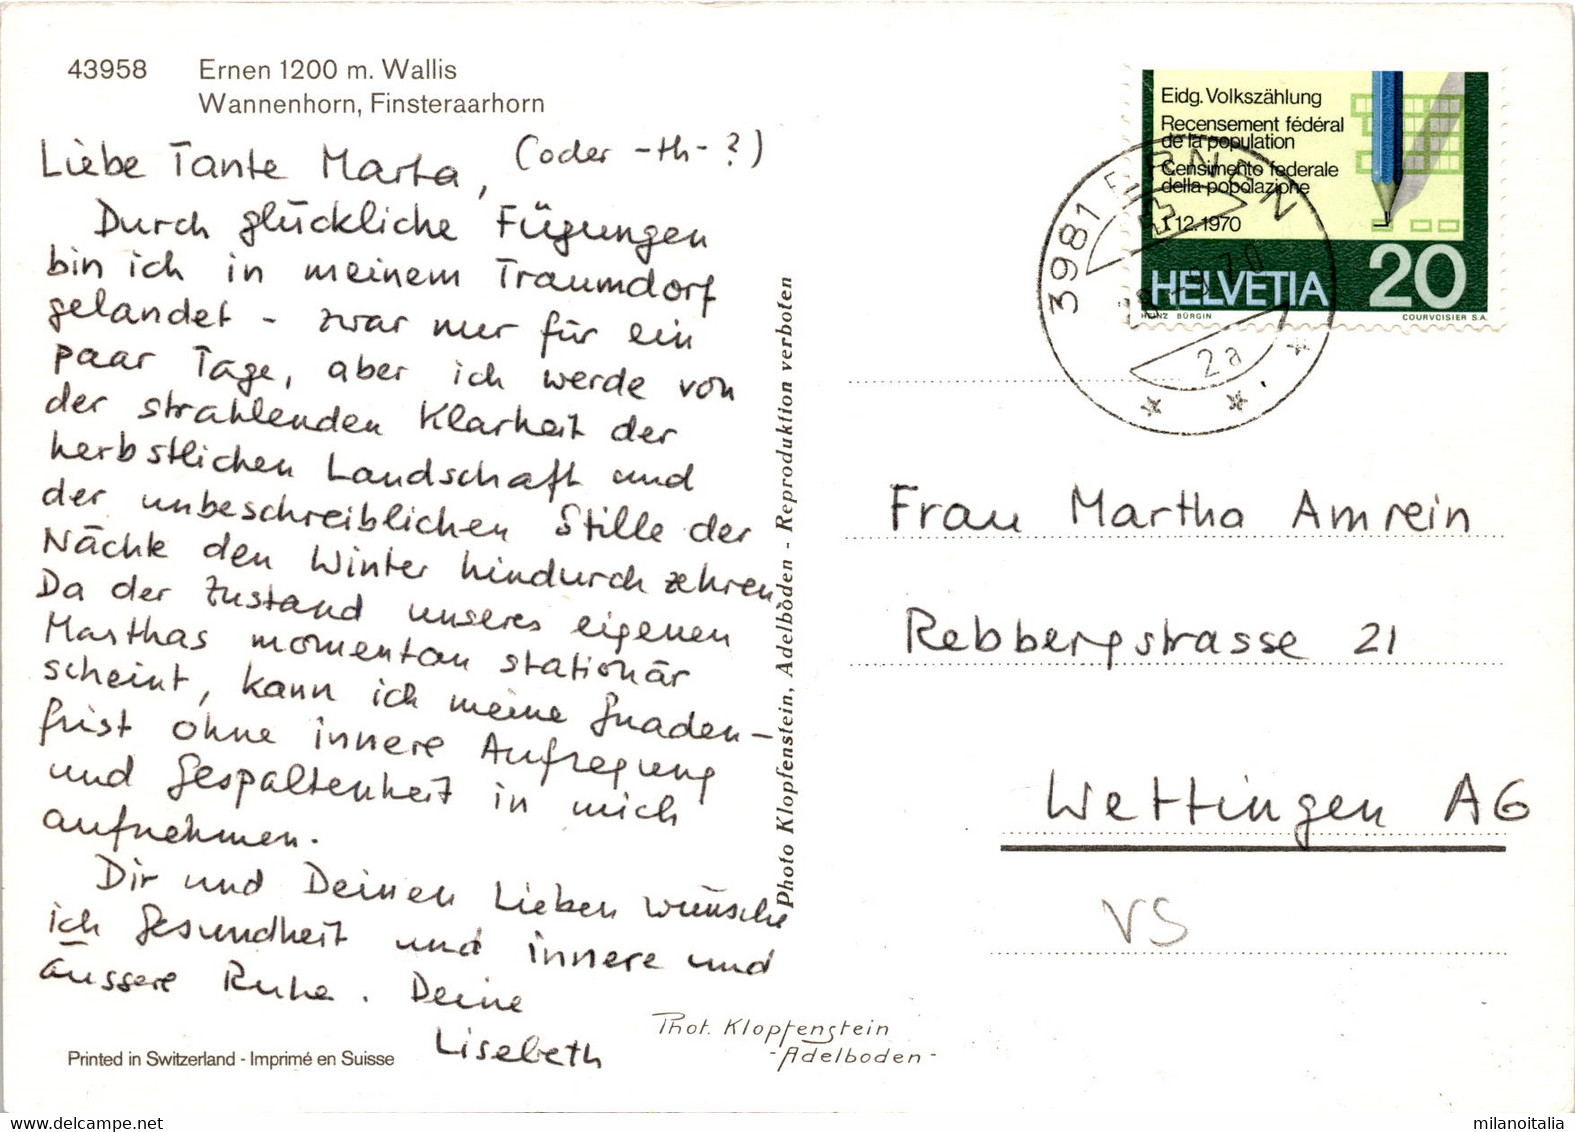 43958 Ernen 1200 m. Wallis
Wannenhorn, Finsteraarhorn
Liebe Tante Marta, (oder -th-?)
Durch glückliche Fügungen
bin ich in meinem Traumdorf
gelandet - zwar nur für ein
paar Tage, aber ich werde von
der strahlenden Klarheit der
herbstlichen Landschaft und
der unbeschreiblichen Stille der
Nächte den Winter hindurch zehren
Da der Zustand unseres eigenen
Marthas momentan stationär
scheint, kann ich meine Gnaden-
frist ohne innere Aufregung
und Gespaltenheit in mich
aufnehmen.
Dir und Deinen Lieben wünsche
ich Gesundheit und innere und
äussere Ruhe. Deine
Lisebeth
Printed in Switzerland - Imprimé en Suisse
Photo Klopfenstein, Adelboden - Reproduktion verboten
Phot. Klopfenstein
- Adelboden -
Eidg. Volkszählung
Recensement fédéral
de la population
Censimento federale
della popolazione
1.12.1970
HELVETIA 20
HEINZ BÜRGIN COURVOISIER S.A.
3981 ERNEN
2a
Frau Martha Amrein
Rebbergstrasse 21
Wettingen AG
VS
milanoitalia